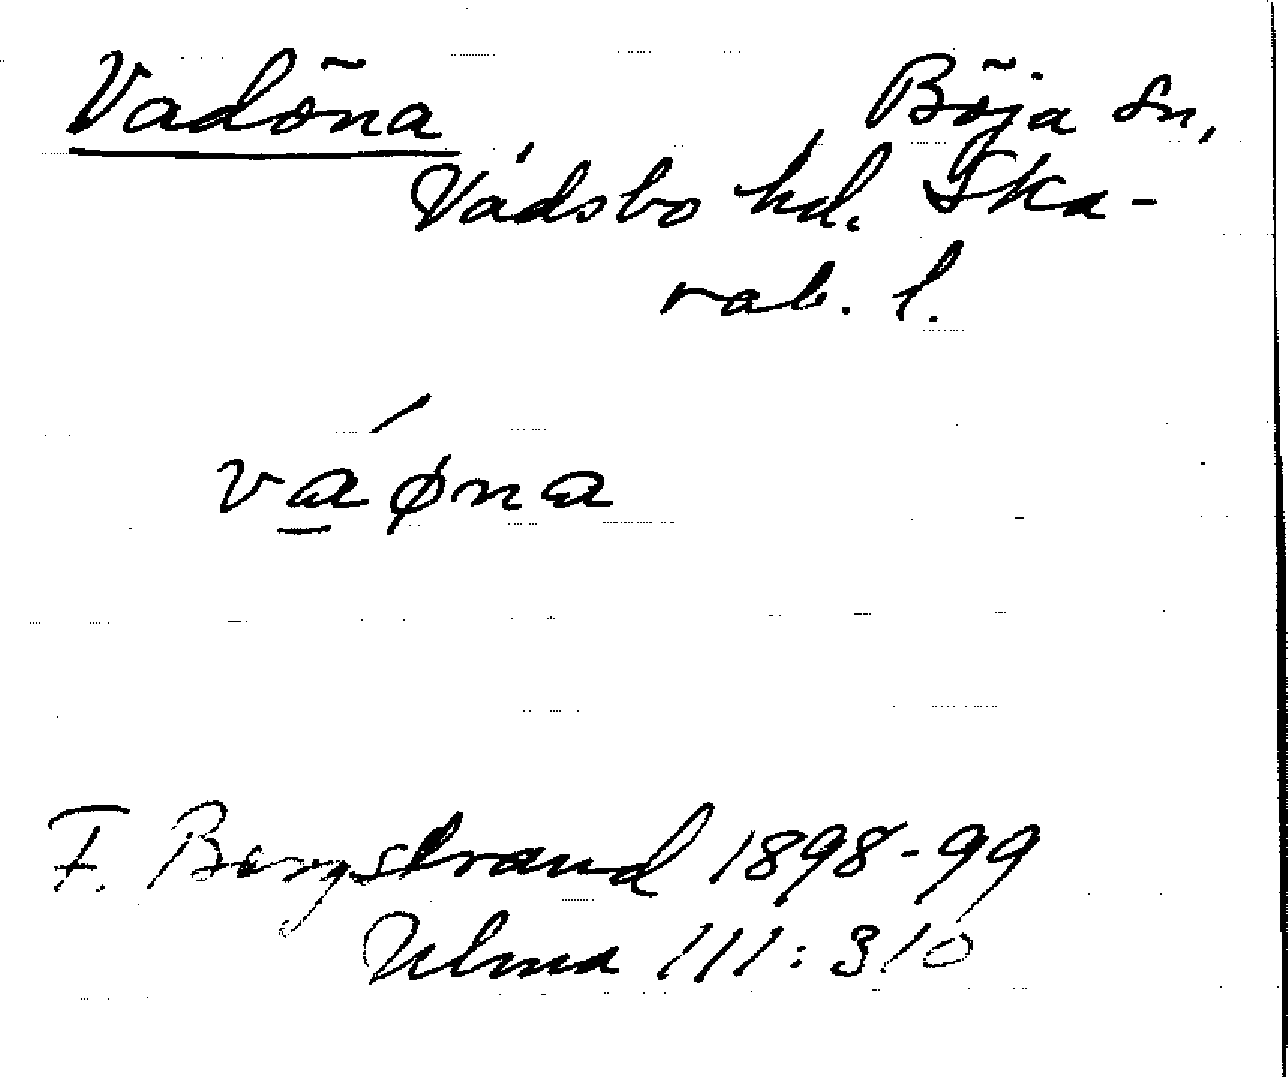 Vadöna Böja sn,
Vadsbo hd. Ska-
rab. l.
va̲ǿna
F. Bergstrand 1898-99
Ulma 111:310